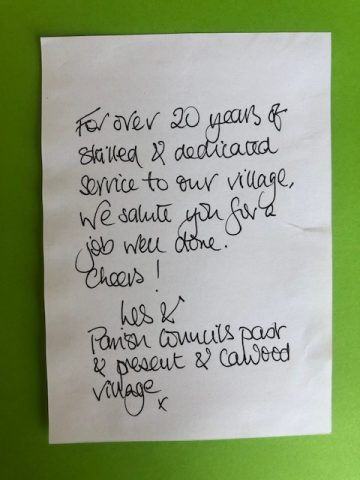 For over 20 years of
skilled & dedicated
service to our village,
we salute you for a
job well done.
Cheers!
Les &
Parish Councils past
& present & Cawood
village
x